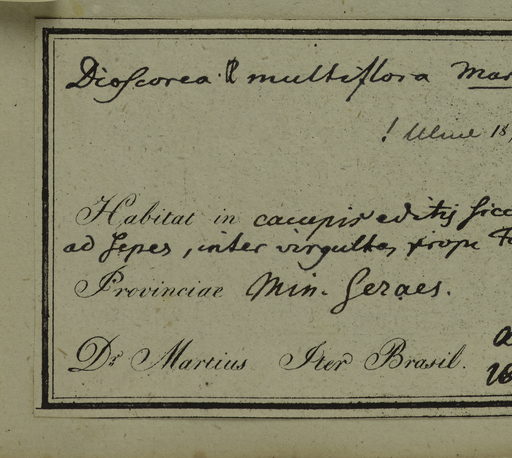 Dioscorea multiflora Mar
! Uline 18
Habitat in campis editis sicc
ad sepes, inter virgulta, prope
Provinciae Min. Geraes.
Dr. Martius Iter Brasil.